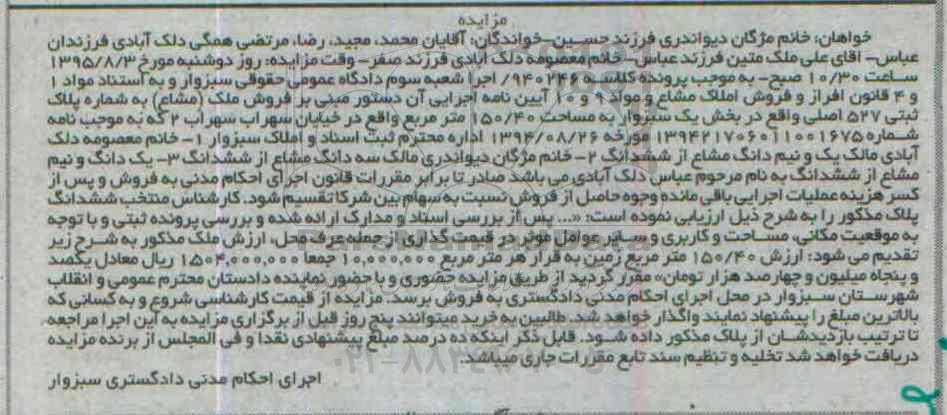 مزایده
خواهان: خانم مژگان دیواندری فرزند حسین-خواندگان: آقایان محمد، مجید، رضا، مرتضی همگی دلک آبادی فرزندان
عباس- اقای علی ملک متین فرزند عباس- خانم معصومه دلک آبادی فرزند صفر- وقت مزایده: روز دوشنبه مورخ ۱۳۹۵/۸/۳
ساعت ۱۰/۳۰ صبح- به موجب پرونده کلاسه ۹۴۰۲۴۶/ اجرا شعبه سوم دادگاه عمومی حقوقی سبزوار و به استناد مواد ۱
و ۴ قانون افراز و فروش املاک مشاع و مواد ۹ و ۱۰ آیین نامه اجرایی آن دستور مبنی بر فروش ملک (مشاع) به شماره پلاک
ثبتی ۵۲۷ اصلی واقع در بخش یک سبزوار به مساحت ۱۵۰/۴۰ متر مربع واقع در خیابان سهراب سهراب ۲ که به موجب نامه
شماره ۱۳۹۴۲۱۷۰۶۰۱۱۰۰۱۶۷۵ مورخه ۱۳۹۴/۰۸/۲۶ اداره محترم ثبت اسناد و املاک سبزوار ۱- خانم معصومه دلک
آبادی مالک یک و نیم دانگ مشاع از ششدانگ ۲- خانم مژگان دیواندری مالک سه دانگ مشاع از ششدانگ ۳- یک دانگ و نیم
مشاع از ششدانگ به نام مرحوم عباس دلک آبادی می باشد صادر تا برابر مقررات قانون اجرای احکام مدنی به فروش و پس از
کسر هزینه عملیات اجرایی باقی مانده وجوه حاصل از فروش نسبت به سهام بین شرکا تقسیم شود. کارشناس منتخب ششدانگ
پلاک مذکور را به شرح ذیل ارزیابی نموده است: «... پس از بررسی اسناد و مدارک ارائه شده و بررسی پرونده ثبتی و با توجه
به موقعیت مکانی، مساحت و کاربری و سایر عوامل موثر در قیمت گذاری از جمله عرف محل، ارزش ملک مذکور به شرح زیر
تقدیم می شود: ارزش ۱۵۰/۴۰ متر مربع زمین به قرار هر متر مربع ۱۰,۰۰۰,۰۰۰ جمعا ۱,۵۰۴,۰۰۰,۰۰۰ ریال معادل یکصد
و پنجاه میلیون و چهارصد هزار تومان» مقرر گردید از طریق مزایده حضوری و با حضور نماینده دادستان محترم عمومی و انقلاب
شهرستان سبزوار در محل اجرای احکام مدنی دادگستری به فروش برسد. مزایده از قیمت کارشناسی شروع و به کسانی که
بالاترین مبلغ را پیشنهاد نمایند واگذار خواهد شد. طالبین به خرید میتوانند پنج روز قبل از برگزاری مزایده به این اجرا مراجعه
تا ترتیب بازدیدشان از پلاک مذکور داده شود. قابل ذکر اینکه ده درصد مبلغ پیشنهادی نقدا و فی المجلس از برنده مزایده
دریافت خواهد شد تخلیه و تنظیم سند تابع مقررات جاری میباشد.
اجرای احکام مدنی دادگستری سبزوار